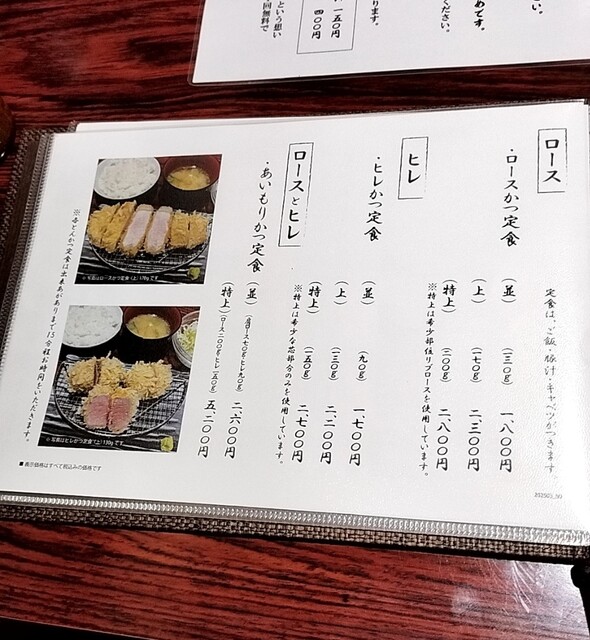 い。
めです。
ください。
ります。
一五〇円
四〇〇円
という想い
回無料で
ロース
定食は、ご飯・豚汁・キャベツがつきます。
・ロースかつ定食
(並) (一三〇g) 一、八〇〇円
(上) (一七〇g) 二、三〇〇円
(特上) (二〇〇g) 二、八〇〇円
※特上は希少部位リブロースを使用しています。
ヒレ
・ヒレかつ定食
(並) (九〇g) 一、七〇〇円
(上) (一三〇g) 二、二〇〇円
(特上) (一五〇g) 二、七〇〇円
※特上は希少な芯部分のみを使用しています。
ロースとヒレ
・あいもりかつ定食
(並) 七〇g ヒレ九〇g) 二、六〇〇円
(特上) (ロース二〇〇g ヒレ一五〇g) 五、二〇〇円
※写真はロースかつ定食(上)170gです
※写真はヒレかつ定食(上)130gです
※各とんかつ定食は出来あがりまで15分程お時間をいただきます。
■表示価格はすべて税込みの価格です